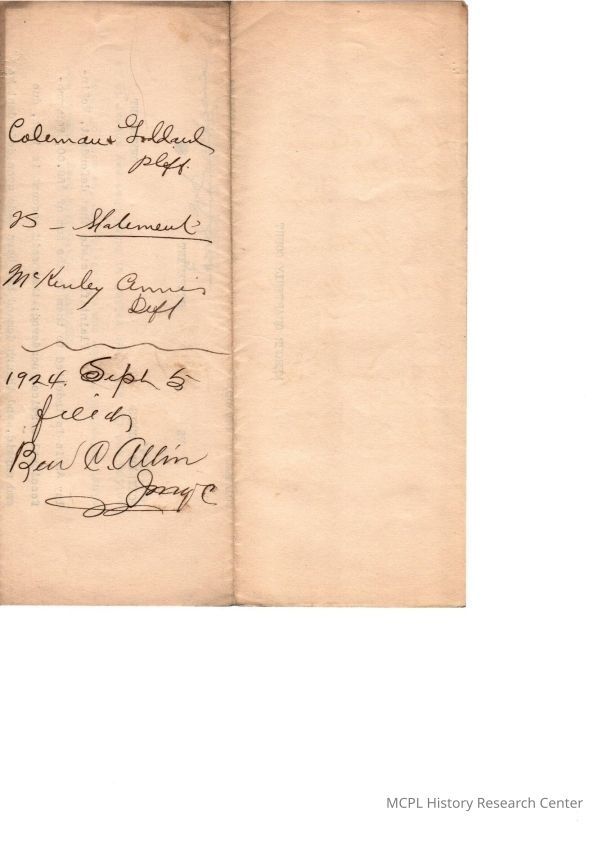 Coleman & Goddard
plff.
vs - Statement
McKinley Annis
Deft
1924. Sept 5
filed
Ben C. Allin
MCPL History Research Center